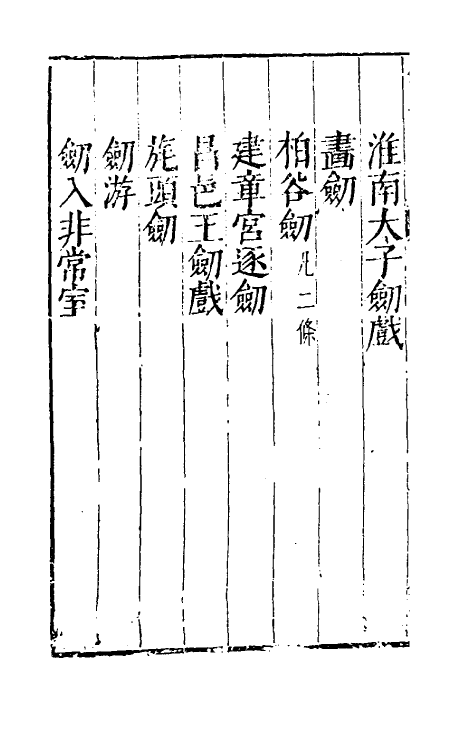 淮南太子劒戲
畫劒
柏谷劒 凡二條
建章宮逐劒
昌邑王劒戲
旄頭劒
劒游
劒入非常室